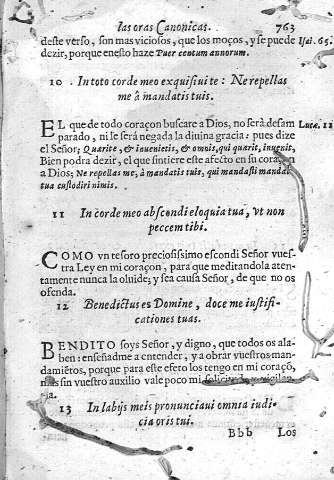 las oras Canonicas. 763
deste verso, son mas viciosos, que los moços, y se puede Isai. 65.
dezir, porque enesto haze Puer centum annorum.
10 In toto corde meo exquisiui te: Ne repellas
me à mandatis tuis.
EL que de todo coraçon buscare a Dios, no será desam Luca. 11
parado, ni le será negada la diuina gracia: pues dize
el Señor; Quærite, & inuenietis, & omnis, qui quærit, inuenit,
Bien podra dezir, el que sintiere este afecto en su coraçon
a Dios; Ne repellas me, à mandatis tuis, qui mandasti mandata
tua custodiri nimis.
11 In corde meo abscondi eloquia tua, vt non
peccem tibi.
COMO vn tesoro preciosissimo escondi Señor vues-
tra Ley en mi coraçon, para que meditandola aten-
tamente nunca la oluide; y sea causa Señor, de que no os
ofenda.
12 Benedictus es Domine, doce me iustifi-
cationes tuas.
BENDITO soys Señor, y digno, que todos os ala-
ben: enseñadme a entender, y a obrar vuestros man-
damiẽtos, porque para este efeto los tengo en mi coraçõ,
mas sin vuestro auxilio vale poco mi
13 In labijs meis pronunciaui omnia iudi-
cia oris tui.
Bbb Los